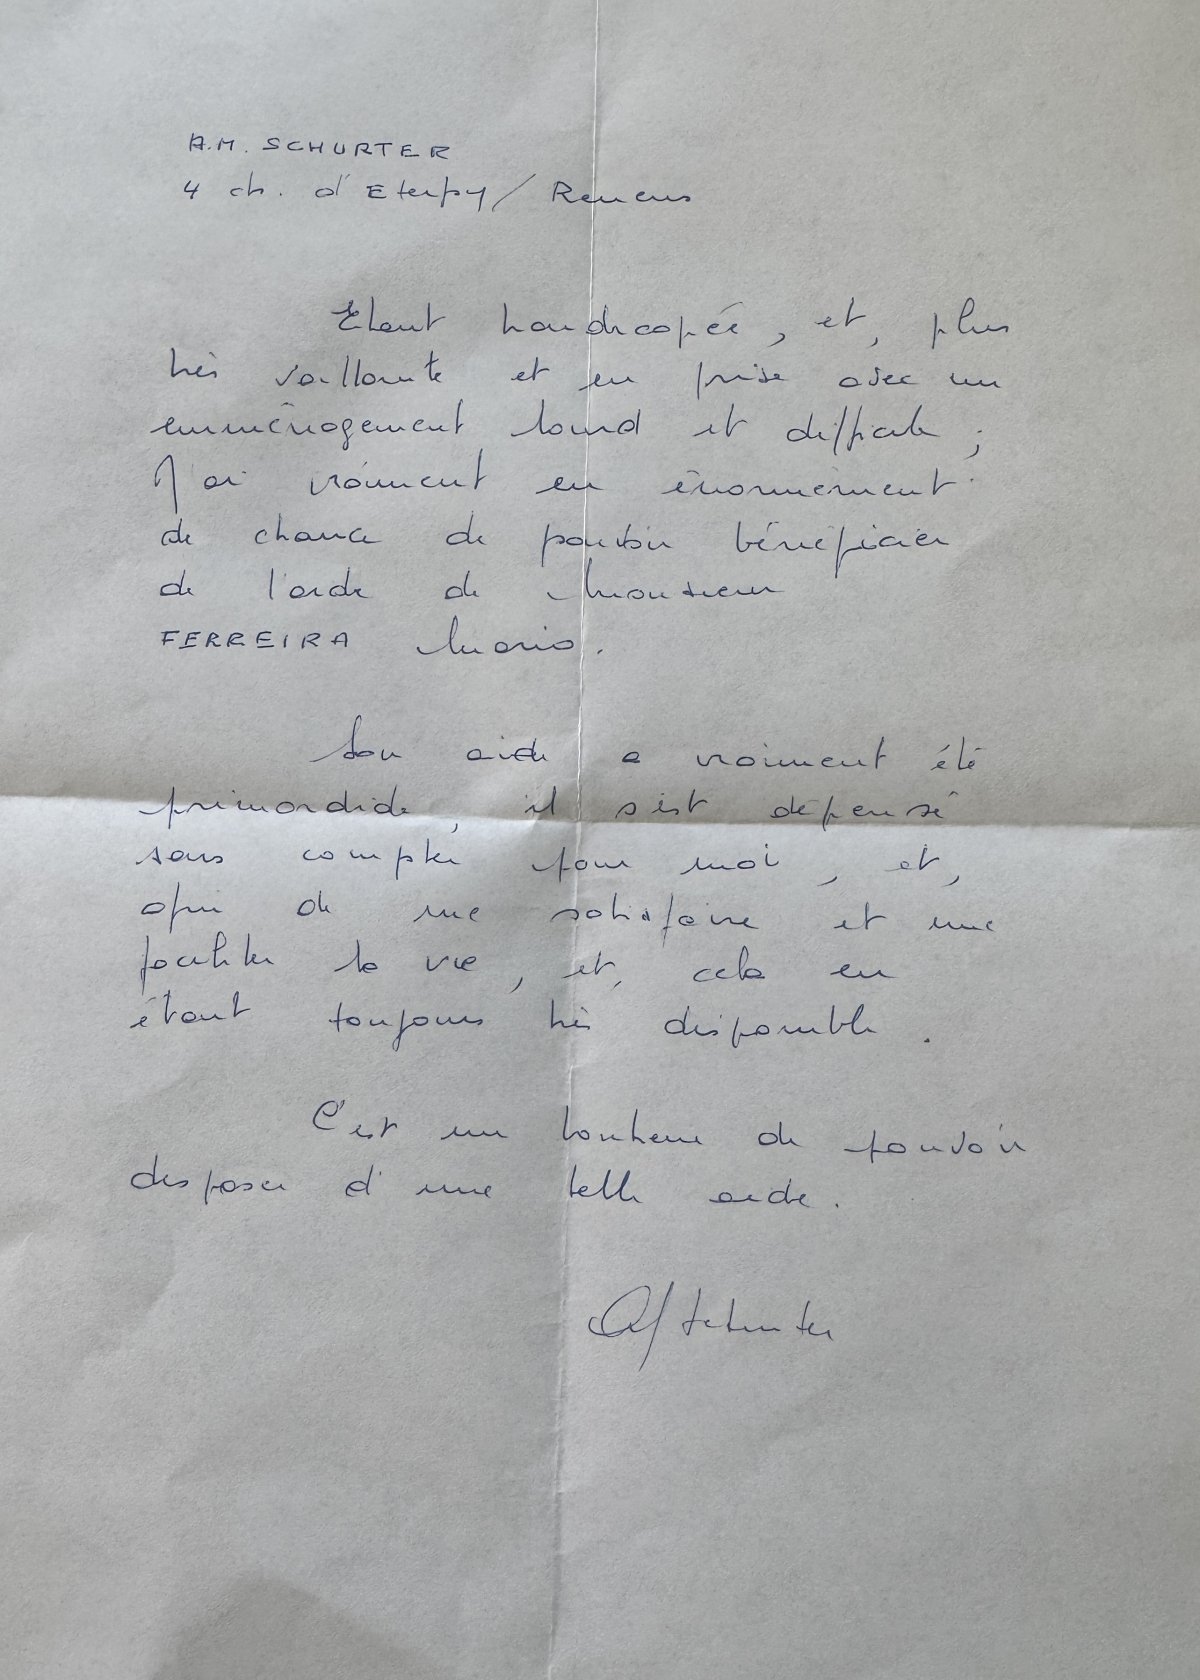 A.M. SCHURTER
4 ch. d'Eterpy / Renens
Etant handicapée, et, plus
très vaillante et en prise avec un
emménagement lourd et difficile ;
J'ai vraiment eu énormément
de chance de pouvoir bénéficier
de l'aide de Monsieur
FERREIRA Mario.
Son aide a vraiment été
primordiale, il s'est dépensé
sans compter pour moi, et,
afin de me satisfaire et me
faciliter la vie, et, cela en
étant toujours très disponible.
C'est un bonheur de pouvoir
disposer d'une telle aide.
Schurter